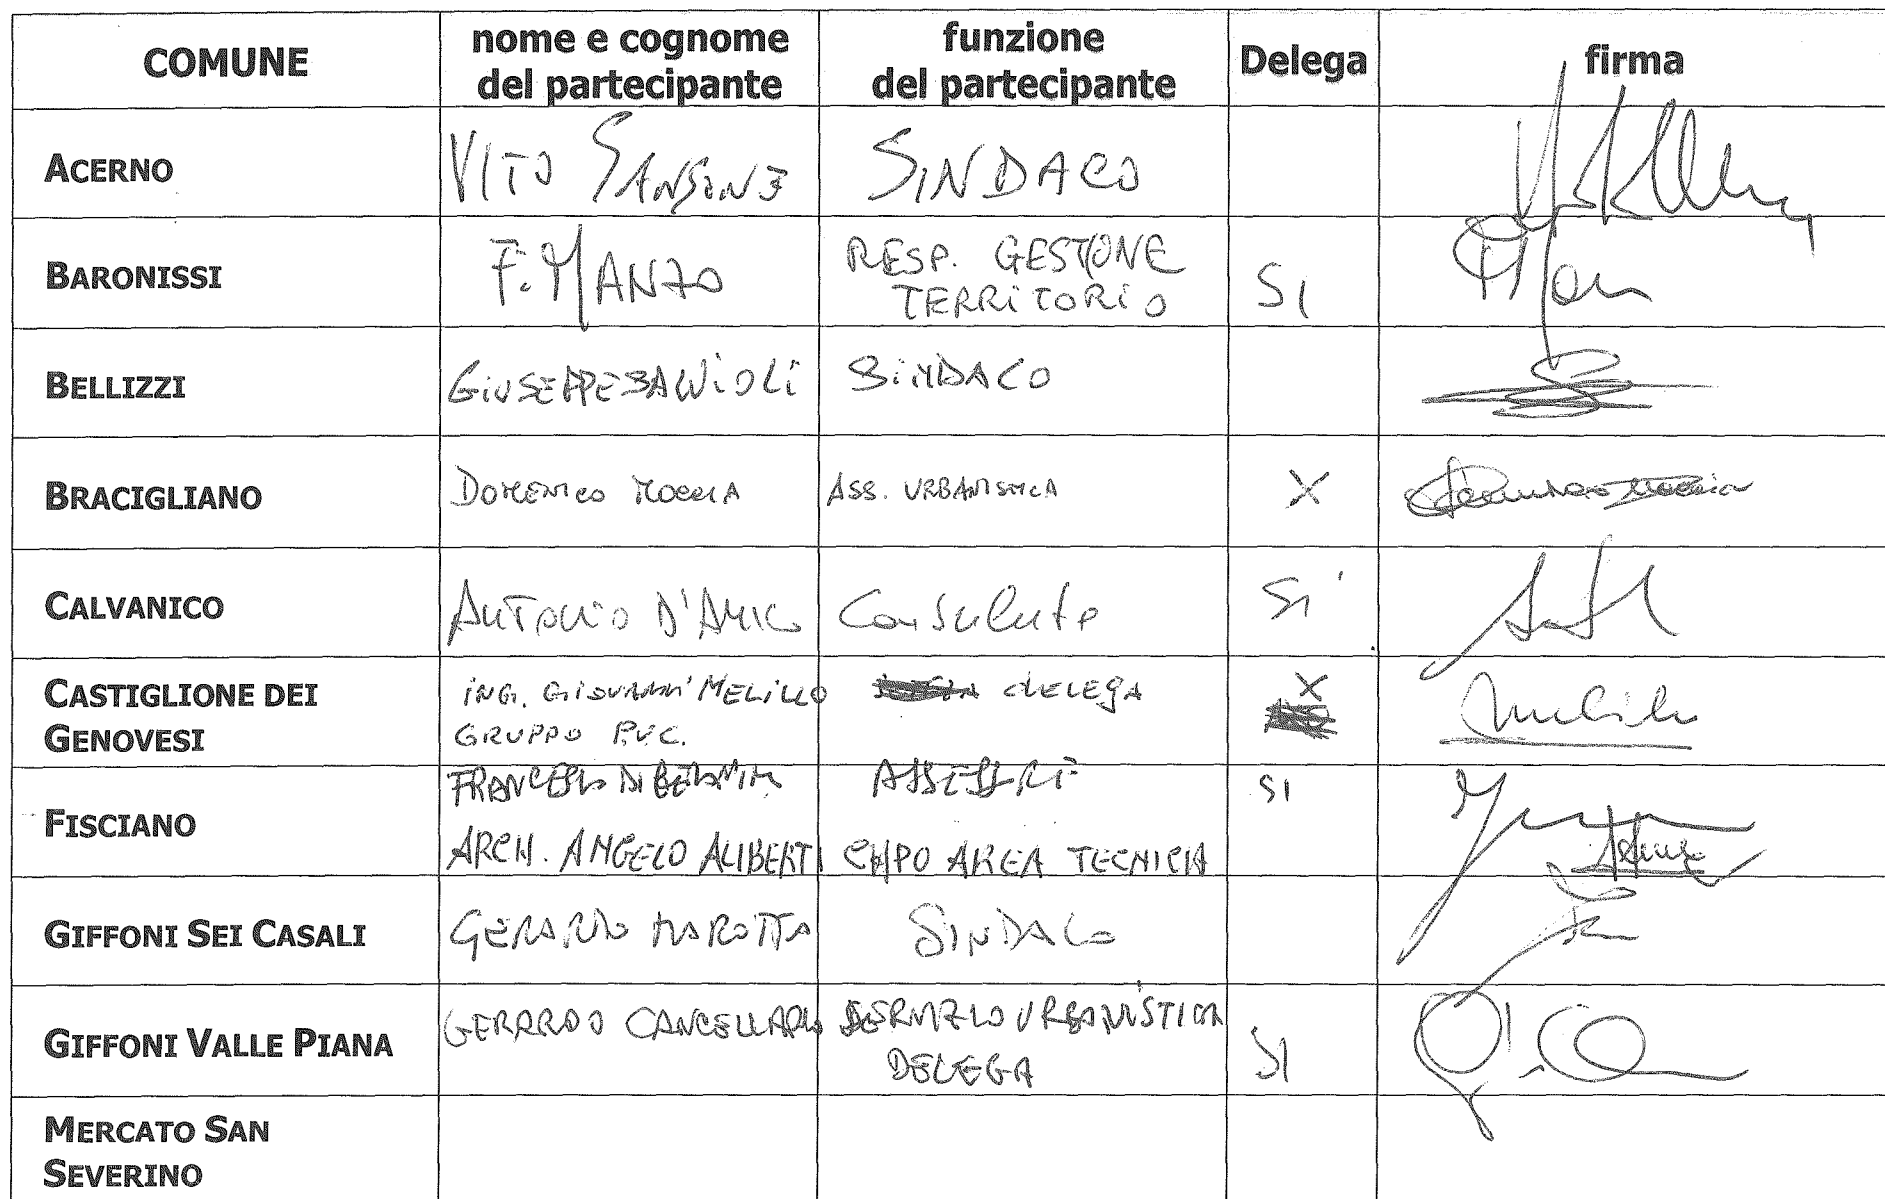 COMUNE nome e cognome del partecipante funzione del partecipante Delega firma
ACERNO VITO SANSONE SINDACO
BARONISSI F. MANZO RESP. GESTIONE TERRITORIO SI
BELLIZZI GIUSEPPE SALVIOLI SINDACO
BRACIGLIANO DOMENICO MOCCIA ASS. URBANISTICA X
CALVANICO ANTONIO D'AMICO Consulente SI
CASTIGLIONE DEI GENOVESI ING. GIOVANNI MELILLO delega X
GRUPPO P.U.C.
FISCIANO FRANCESCO DI ASSESSORE SI
ARCH. ANGELO ALIBERTI CAPO AREA TECNICA
GIFFONI SEI CASALI GERARDO MAROTTA SINDACO
GIFFONI VALLE PIANA GERARDO CANCELLARO SERVIZIO URBANISTICA SI
DELEGA
MERCATO SAN SEVERINO